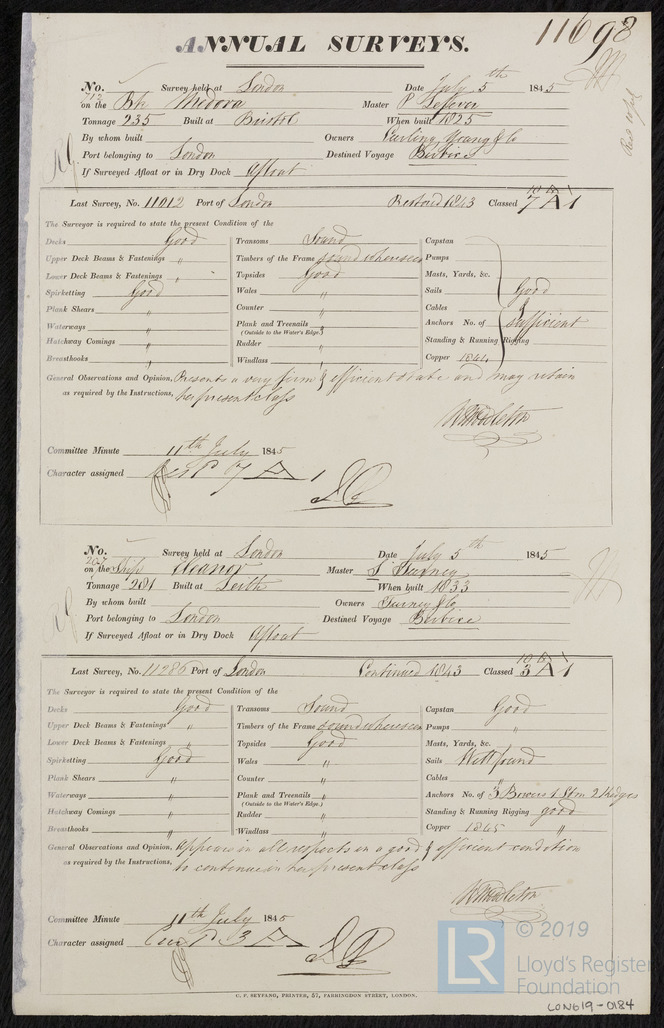 11698
ANNUAL SURVEYS.
No. 712 Survey held at London Date July 5th 1845
on the Bk Medora Master P Lefever
Tonnage 235 Built at Bristol When built 1825
By whom built Owners Curling, Young & Co
Port belonging to London Destined Voyage Berbice
If Surveyed Afloat or in Dry Dock Afloat
Last Survey, No. 11012 Port of London Restored 1843 Classed 7 A 1
The Surveyor is required to state the present Condition of the
Decks Good Transoms Sound Capstan
Upper Deck Beams & Fastenings " Timbers of the Frame sound where seen Pumps
Lower Deck Beams & Fastenings " Topsides Good Masts, Yards, &c.
Spirketting Good Wales " Sails Good
Plank Shears " Counter " Cables &
Waterways " Plank and Treenails " Anchors No. of sufficient
(Outside to the Water's Edge)
Hatchway Comings " Rudder " Standing & Running Rigging
Breasthooks " Windlass " Copper 1844
General Observations and Opinion, Presents a very firm & efficient state and may retain
as required by the Instructions, her present class
Committee Minute 11th July 1845
Character assigned 7 A 1
No. 207 Survey held at London Date July 5th 1845
on the Ship Eleanor Master S Turney
Tonnage 201 Built at Leith When built 1833
By whom built Owners Turney & Co
Port belonging to London Destined Voyage Berbice
If Surveyed Afloat or in Dry Dock Afloat
Last Survey, No. 11286 Port of London Continued 1843 Classed 3 A 1
The Surveyor is required to state the present Condition of the
Decks Good Transoms Sound Capstan Good
Upper Deck Beams & Fastenings " Timbers of the Frame sound where seen Pumps "
Lower Deck Beams & Fastenings " Topsides Good Masts, Yards, &c. "
Spirketting Good Wales " Sails Well found
Plank Shears " Counter " Cables "
Waterways " Plank and Treenails " Anchors No. of 3 Bowers 1 Stm 2 Kedges
(Outside to the Water's Edge.)
Hatchway Comings " Rudder " Standing & Running Rigging good
Breasthooks " Windlass " Copper 1845 "
General Observations and Opinion, Appears in all respects in a good & efficient condition
as required by the Instructions, to continue in her present class
Committee Minute 11th July 1845
Character assigned 3 A 1
C. F. SEYFANG, PRINTER, 57, FARRINGDON STREET, LONDON.
LR © 2019
Lloyd's Register
Foundation
LON619-0184